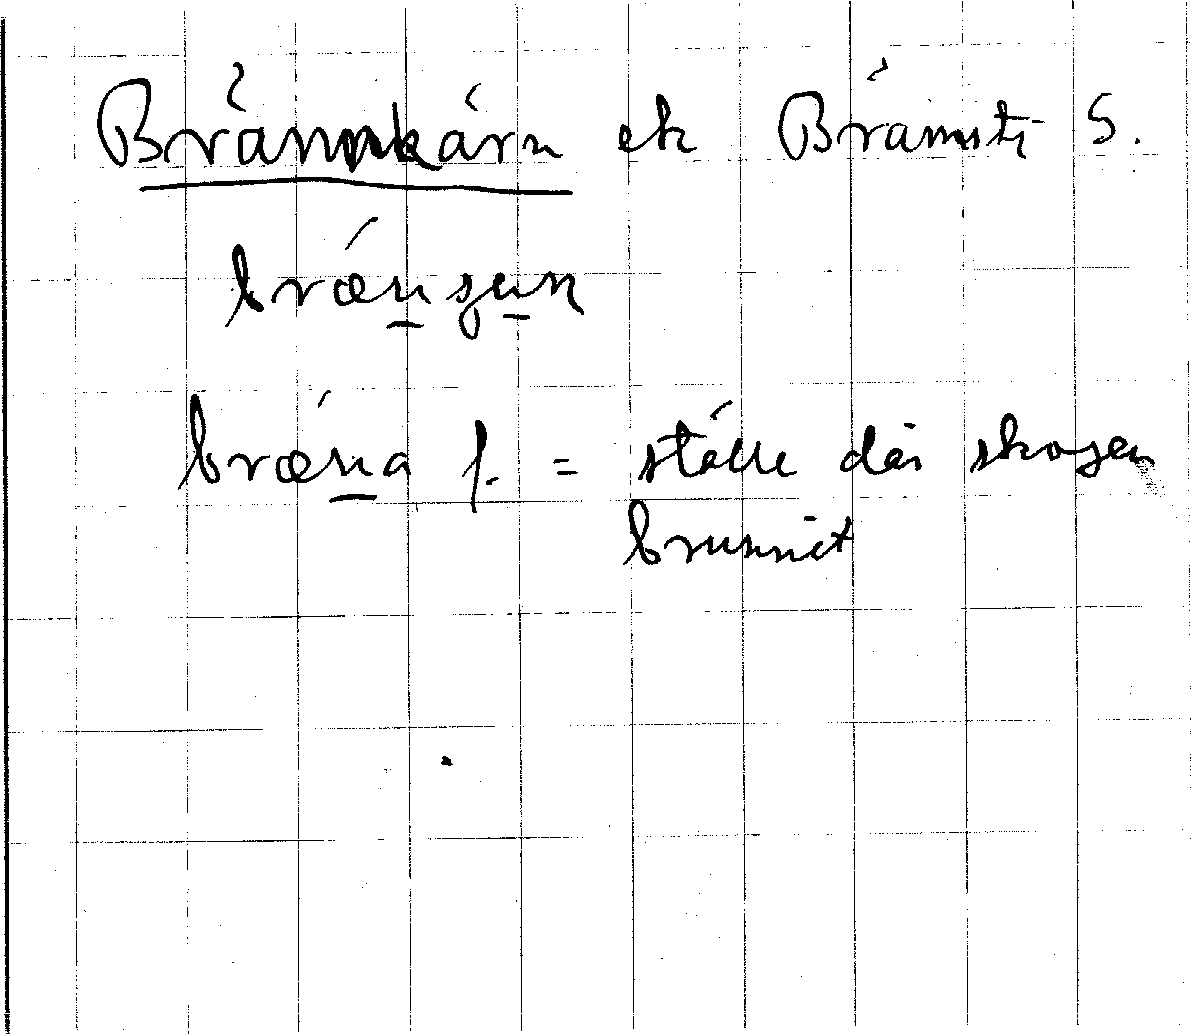 Brännkärn ek Brämsti S.
brænsen
bræna f. = ställe där skogen
brunnit